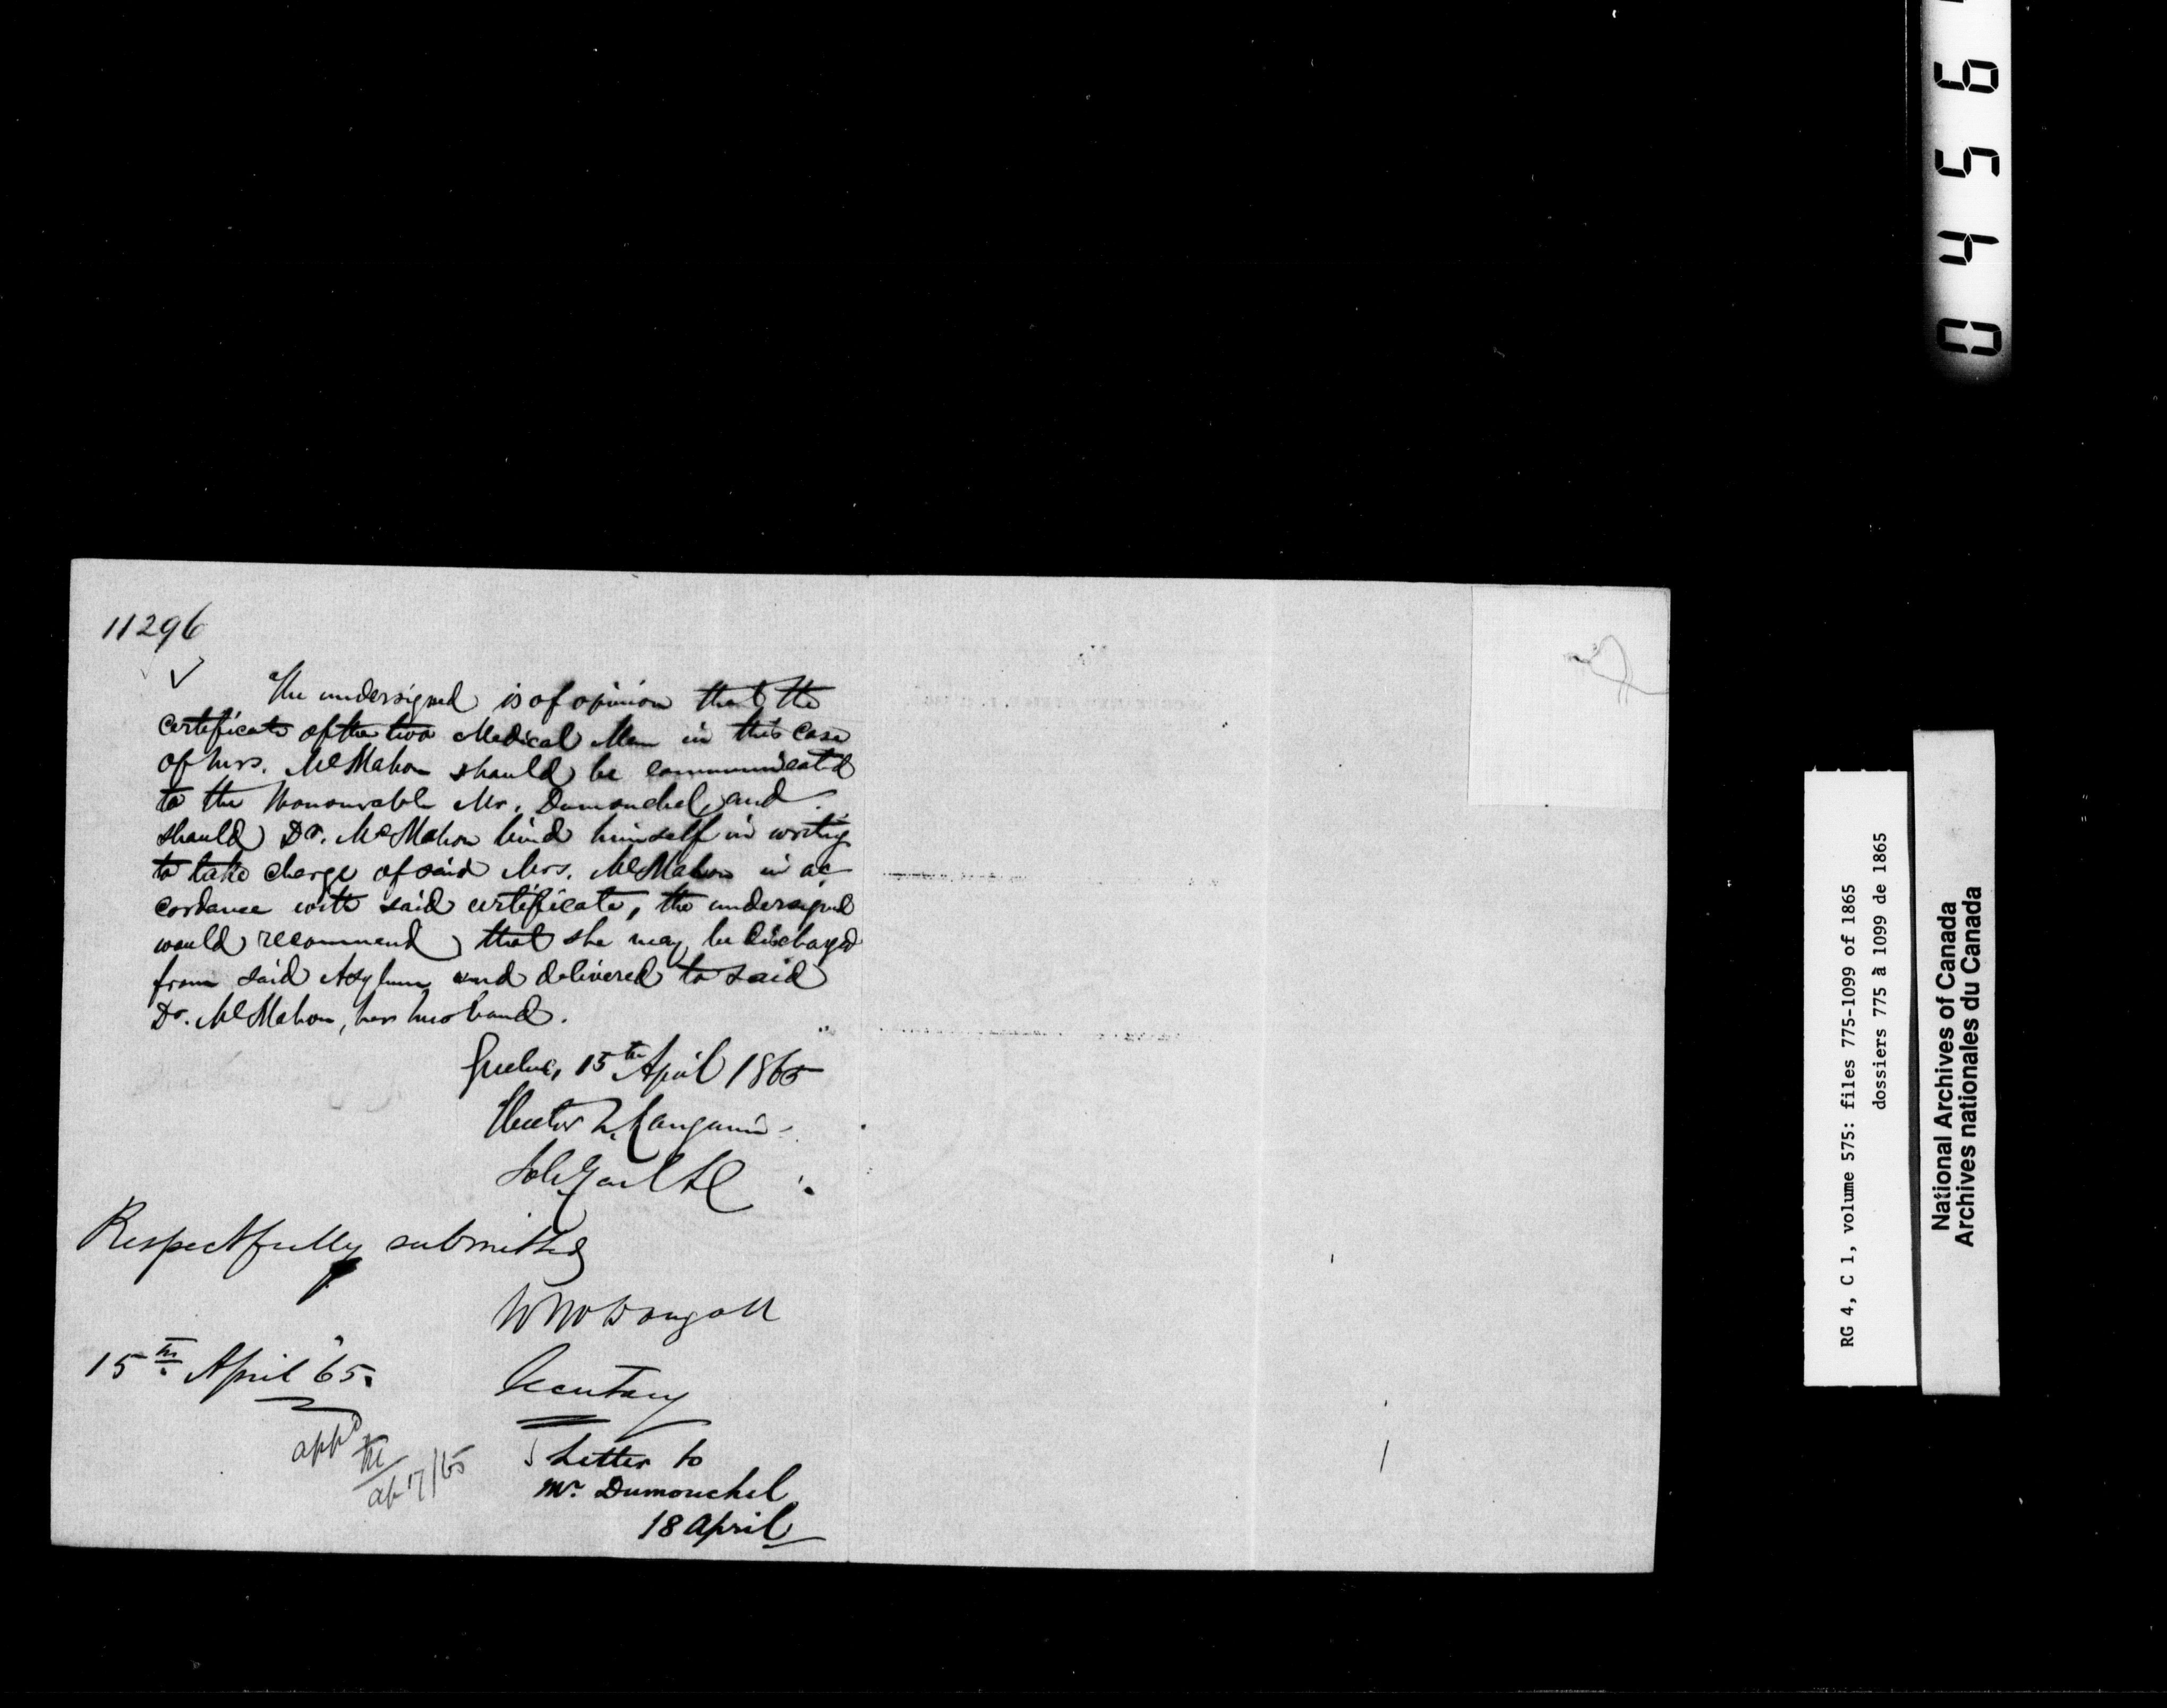 11296
The undersigned is of opinion that the
certificate of the two Medical Men in this case
of Mrs. McMahon should be communicated
to the Honourable Mr. Dumouchel, and
should Dr. McMahon bind himself in writing
to take charge of said Mrs. McMahon in ac
cordance with said certificate, the undersigned
would recommend that she may be discharged
from said Asylum and delivered to said
Dr. McMahon, her husband.
Quebec, 15th April 1865
Hector L. Langevin
Sol. Genl LC
Respectfully submitted
W McDougall
Secretary
15th April '65.
appd
ap 17/65
Letter to
Mr. Dumouchel
18 April
0456
RG 4, C 1, volume 575: files 775-1099 of 1865
dossiers 775 à 1099 de 1865
National Archives of Canada
Archives nationales du Canada